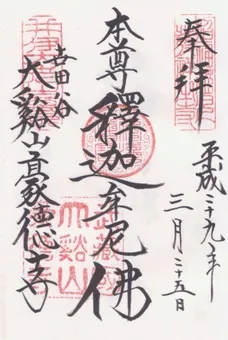 奉拝
平成二十九年
三月二十五日
本尊釋迦牟尼佛
世田谷
大谿山豪德寺